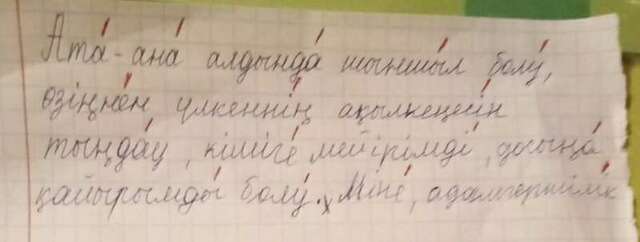 Ата-ана алдында шыншыл болу,
өзіңнен үлкеннің ақылкеңесін
тыңдау, кішіге мейірімді, досыңа
қайырымды болу. Міне, адамгершілік